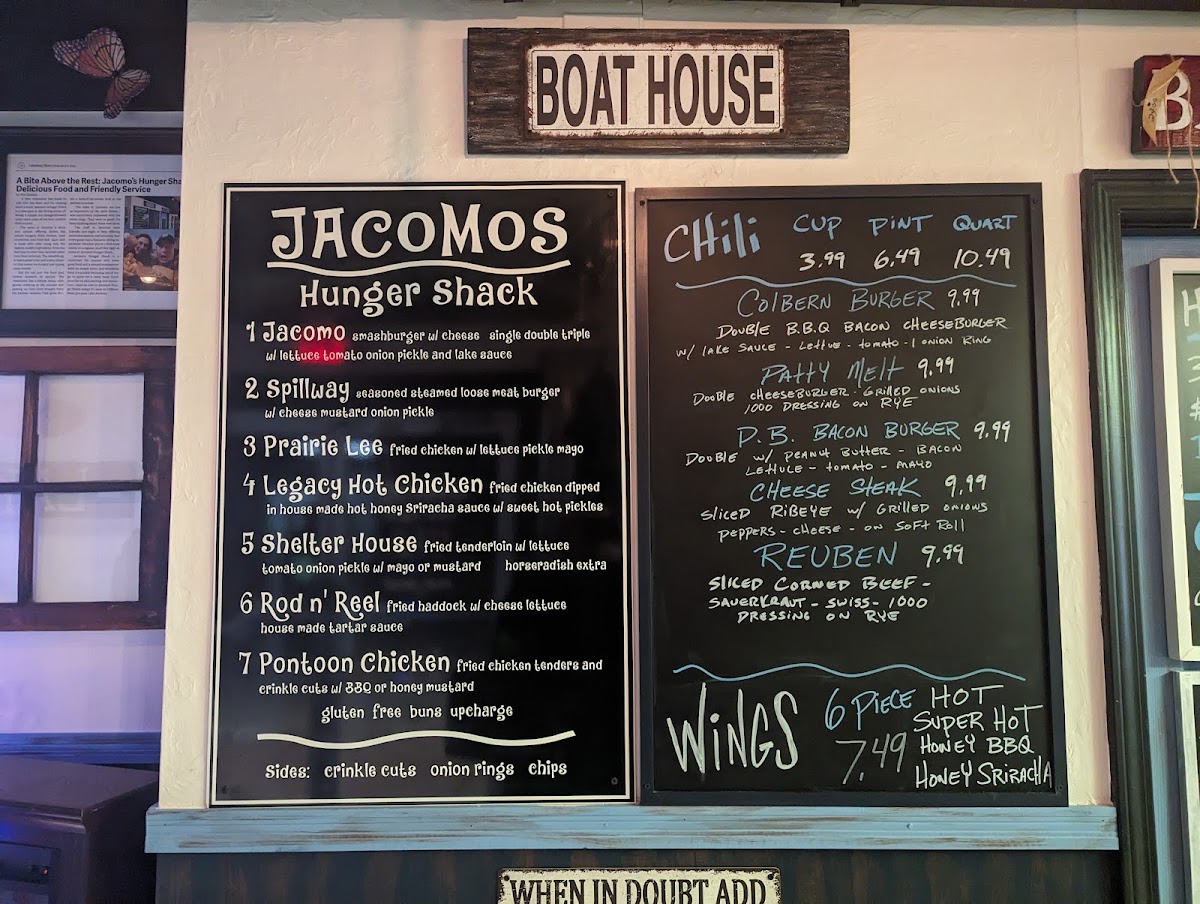 BOAT HOUSE
A Bite Above the Rest: Jacomo's Hunger Sha
Delicious Food and Friendly Service
JACOMOS
Hunger Shack
1 Jacomo smashburger w/ cheese single double triple
w/ lettuce tomato onion pickle and lake sauce
2 Spillway seasoned steamed loose meat burger
w/ cheese mustard onion pickle
3 Prairie Lee fried chicken w/ lettuce pickle mayo
4 Legacy Hot Chicken fried chicken dipped
in house made hot honey Sriracha sauce w/ sweet hot pickles
5 Shelter House fried tenderloin w/ lettuce
tomato onion pickle w/ mayo or mustard horseradish extra
6 Rod n' Reel fried haddock w/ cheese lettuce
house made tartar sauce
7 Pontoon Chicken fried chicken tenders and
crinkle cuts w/ BBQ or honey mustard
gluten free buns upcharge
Sides: crinkle cuts onion rings chips
CHili CUP PINT QUART
3.99 6.49 10.49
COLBERN BURGER 9.99
DOUBLE B.B.Q BACON CHEESEBURGER
W/ LAKE SAUCE - LETTUE - TOMATO - 1 ONION RING
PATTY MELT 9.99
DOUBLE CHEESEBURGER - GRILLED ONIONS
1000 DRESSING ON RYE
P.B. BACON BURGER 9.99
DOUBLE W/ PEANUT BUTTER - BACON
LETTUCE - TOMATO - MAYO
CHEESE STEAK 9.99
SLICED RIBEYE W/ GRILLED ONIONS
PEPPERS - CHEESE - ON SOFT ROLL
REUBEN 9.99
SLICED CORNED BEEF -
SAUERKRAUT - SWISS - 1000
DRESSING ON RYE
WiNGS 6 PIECE 7.49
HOT
SUPER HOT
HONEY BBQ
HONEY SRIRACHA
WHEN IN DOUBT ADD